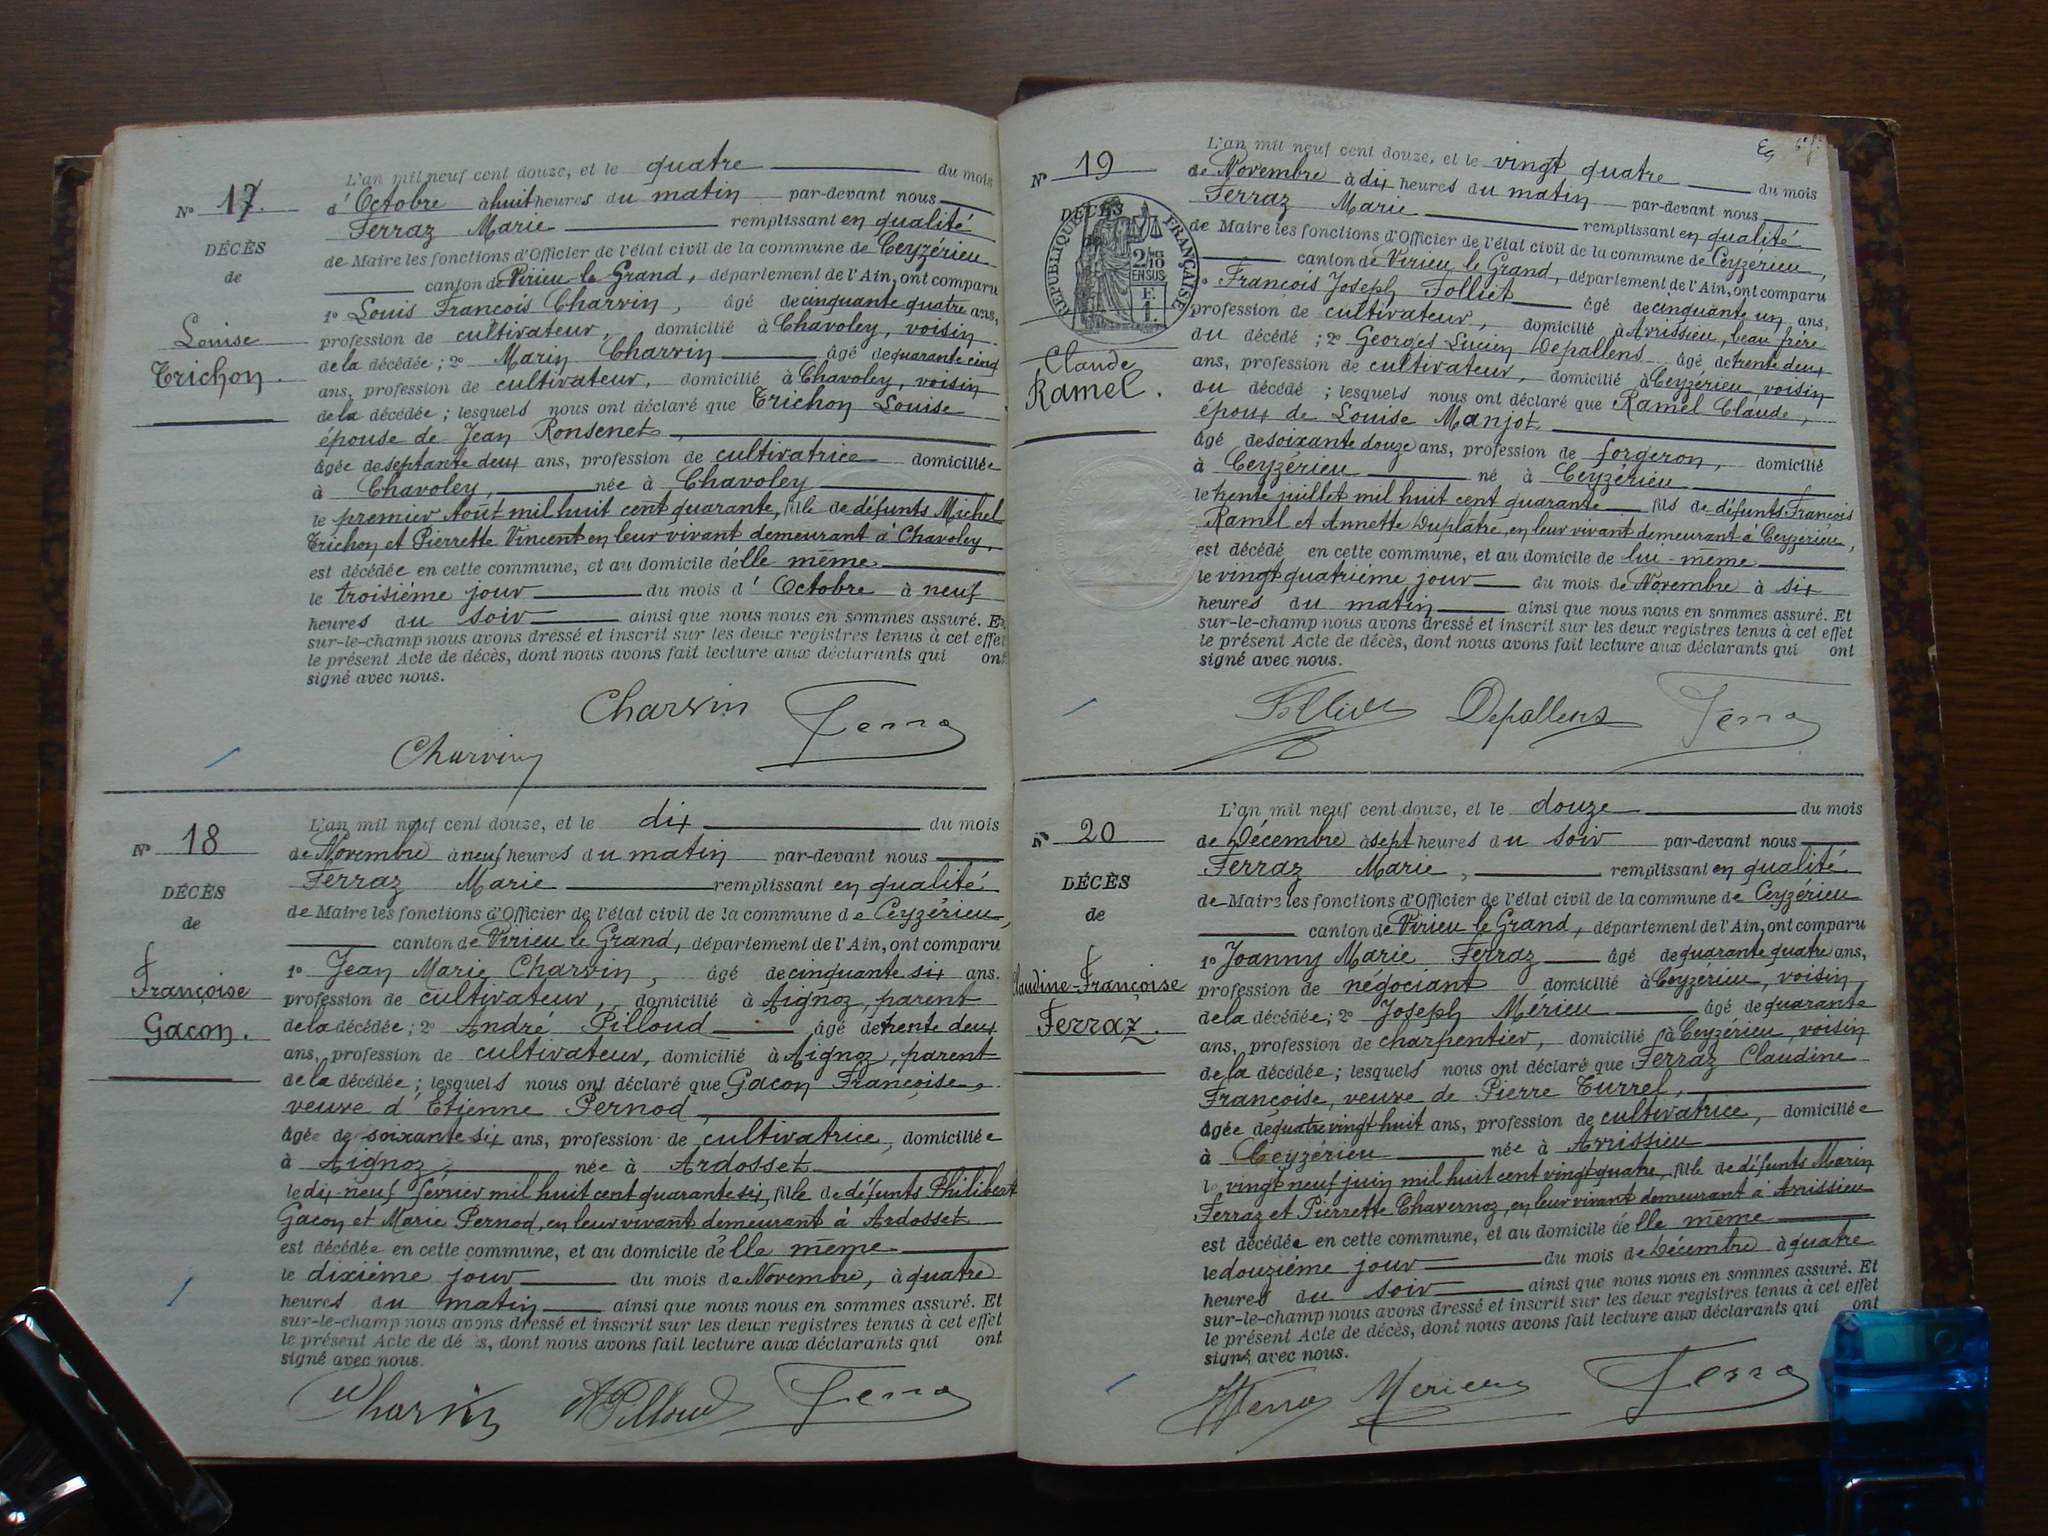 N° 17.
DÉCÈS
de
Louise
Trichon.
L'an mil neuf cent douze, et le quatre du mois
d'Octobre à huit heures du matin par-devant nous
Ferraz Marie remplissant en qualité
de Maire les fonctions d'Officier de l'état civil de la commune de Ceyzérieu
canton de Virieu le Grand, département de l'Ain, ont comparu
1° Louis François Charvin, âgé de cinquante quatre ans,
profession de cultivateur, domicilié à Chavoley, voisin
de la décédée ; 2° Marin Charvin âgé de quarante cinq
ans, profession de cultivateur, domicilié à Chavoley, voisin
de la décédée ; lesquels nous ont déclaré que Trichon Louise
épouse de Jean Ronsenet,
âgée de septante deux ans, profession de cultivatrice domiciliée
à Chavoley, née à Chavoley
le premier Août mil huit cent quarante, fille de défunts Michel
Trichon et Pierrette Vincent en leur vivant demeurant à Chavoley,
est décédée en cette commune, et au domicile d'elle même
le troisième jour du mois d'Octobre à neuf
heures du soir ainsi que nous nous en sommes assuré. Et
sur-le-champ nous avons dressé et inscrit sur les deux registres tenus à cet effet
le présent Acte de décès, dont nous avons fait lecture aux déclarants qui ont
signé avec nous.
Charvin Ferra
Charvin
N° 18
DÉCÈS
de
Françoise
Gacon.
L'an mil neuf cent douze, et le dix du mois
de Novembre à neuf heures du matin par-devant nous
Ferraz Marie remplissant en qualité
de Maire les fonctions d'Officier de l'état civil de la commune de Ceyzérieu,
canton de Virieu le Grand, département de l'Ain, ont comparu
1° Jean Marie Charvin, âgé de cinquante six ans.
profession de cultivateur, domicilié à Aignoz, parent
de la décédée ; 2° André Pilloud âgé de trente deux
ans, profession de cultivateur, domicilié à Aignoz, parent
de la décédée ; lesquels nous ont déclaré que Gacon Françoise,
veuve d'Etienne Pernod,
âgée de soixante six ans, profession de cultivatrice, domiciliée
à Aignoz née à Ardosset
le dix-neuf février mil huit cent quarante six, fille de défunts Philibert
Gacon et Marie Pernod, en leur vivant demeurant à Ardosset
est décédée en cette commune, et au domicile d'elle même
le dixième jour du mois de Novembre, à quatre
heures du matin ainsi que nous nous en sommes assuré. Et
sur-le-champ nous avons dressé et inscrit sur les deux registres tenus à cet effet
le présent Acte de dé s, dont nous avons fait lecture aux déclarants qui ont
signé avec nous.
Charvin APilloud Ferra
N° 19
DÉCÈS
RÉPUBLIQUE FRANÇAISE
2/10
EN SUS
Claude
Ramel.
L'an mil neuf cent douze, et le vingt quatre du mois
de Novembre à dix heures du matin par-devant nous
Ferraz Marie remplissant en qualité
de Maire les fonctions d'Officier de l'état civil de la commune de Ceyzerieu,
canton de Virieu le Grand, département de l'Ain, ont comparu
1° François Joseph Folliet âgé de cinquante un ans,
profession de cultivateur, domicilié à Avrissieu, beau frère
du décédé ; 2° Georges Lucien Depallens âgé de trente deux
ans, profession de cultivateur, domicilié à Ceyzérieu, voisin
du décédé ; lesquels nous ont déclaré que Ramel Claude,
époux de Louise Manjot
âgé de soixante douze ans, profession de forgeron, domicilié
à Ceyzérieu né à Ceyzérieu
le trente juillet mil huit cent quarante fils de défunts François
Ramel et Annette Duplatre, en leur vivant demeurant à Ceyzérieu,
est décédé en cette commune, et au domicile de lui-même
le vingt quatrième jour du mois de Novembre à six
heures du matin ainsi que nous nous en sommes assuré. Et
sur-le-champ nous avons dressé et inscrit sur les deux registres tenus à cet effet
le présent Acte de décès, dont nous avons fait lecture aux déclarants qui ont
signé avec nous.
Folliet Depallens Ferra
N° 20
DÉCÈS
de
Claudine-Françoise
Ferraz.
L'an mil neuf cent douze, et le douze du mois
de Décembre à sept heures du soir par-devant nous
Ferraz Marie, remplissant en qualité
de Maire les fonctions d'Officier de l'état civil de la commune de Ceyzérieu
canton de Virieu le Grand, département de l'Ain, ont comparu
1° Joanny Marie Ferraz âgé de quarante quatre ans,
profession de négociant domicilié à Ceyzérieu, voisin
de la décédée ; 2° Joseph Mérieu âgé de quarante
ans, profession de charpentier, domicilié à Ceyzérieu, voisin
de la décédée ; lesquels nous ont déclaré que Ferraz Claudine
Françoise, veuve de Pierre Turrel,
âgée de quatre vingt huit ans, profession de cultivatrice, domiciliée
à Ceyzérieu née à Avrissieu
le vingt neuf juin mil huit cent vingt quatre, fille de défunts Marin
Ferraz et Pierrette Chavernoz, en leur vivant demeurant à Avrissieu
est décédée en cette commune, et au domicile d'elle même
le douzième jour du mois de Décembre à quatre
heures du soir ainsi que nous nous en sommes assuré. Et
sur-le-champ nous avons dressé et inscrit sur les deux registres tenus à cet effet
le présent Acte de décès, dont nous avons fait lecture aux déclarants qui ont
signé avec nous.
Ferra Merieu Ferra